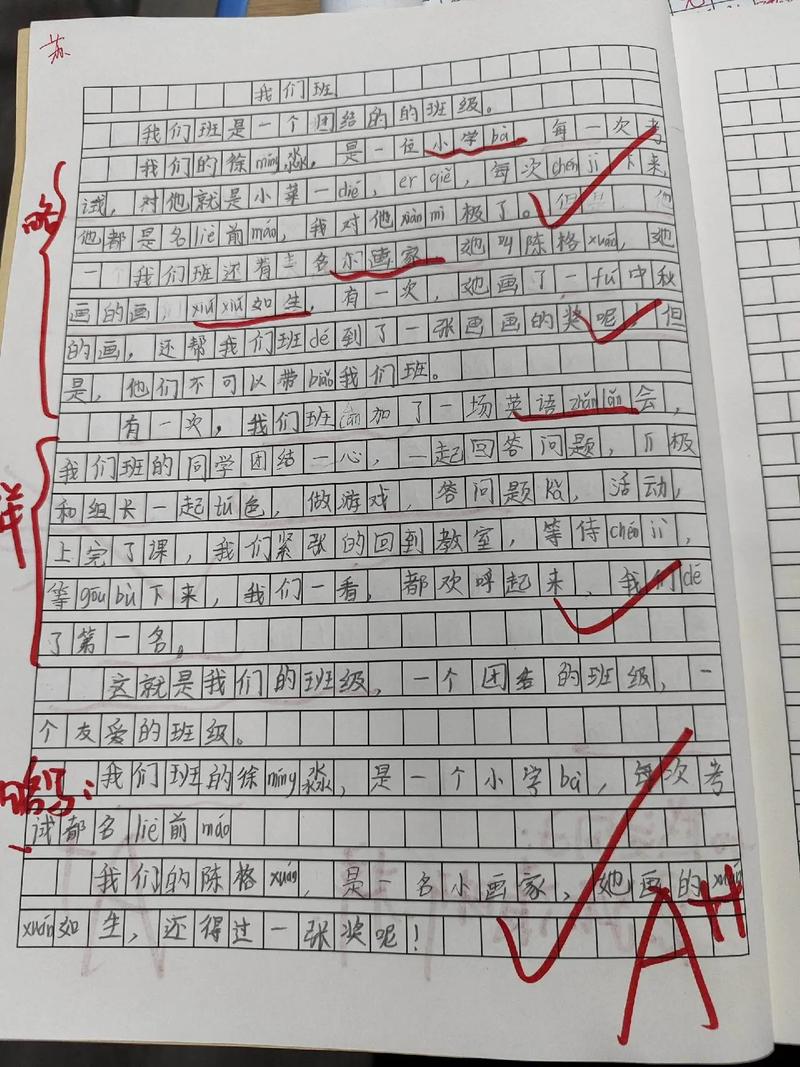 苏
我们班
我们班是一个团结的的班级。
我们的徐míng淼，是一位小学bà，每一次考
试，对他就是小菜一dié，er qiě，每次chéng jì下来，
他都是名liè前máo，我对他xiàn mì极了。
略
我们班还有一名小画家，她叫陈格xuán，她
画的画 xiú xiú如生，有一次，她画了一fú中秋
的画，还帮我们班dé到了一张画画的奖呢！但
是，他们不可以带biǎo我们班。
有一次，我们班加了一场英语zhǎn lǎn会，
我们班的同学团结一心，一起回答问题，jī极
和组长一起tú色，做游戏，答问题，活动，
详
上完了课，我们紧张的回到教室，等待chéng jì，
等gōu bù下来，我们一看，都欢呼起来，我们dé
了第一名。
这就是我们的班级，一个团结的班级，一
个友爱的班级。
略写：
我们班的徐míng淼，是一个小学bà，每次考
试都名liè前máo
我们的陈格xuán，是一名小画家，她画的
xuán如生，还得过一张奖呢！
A++